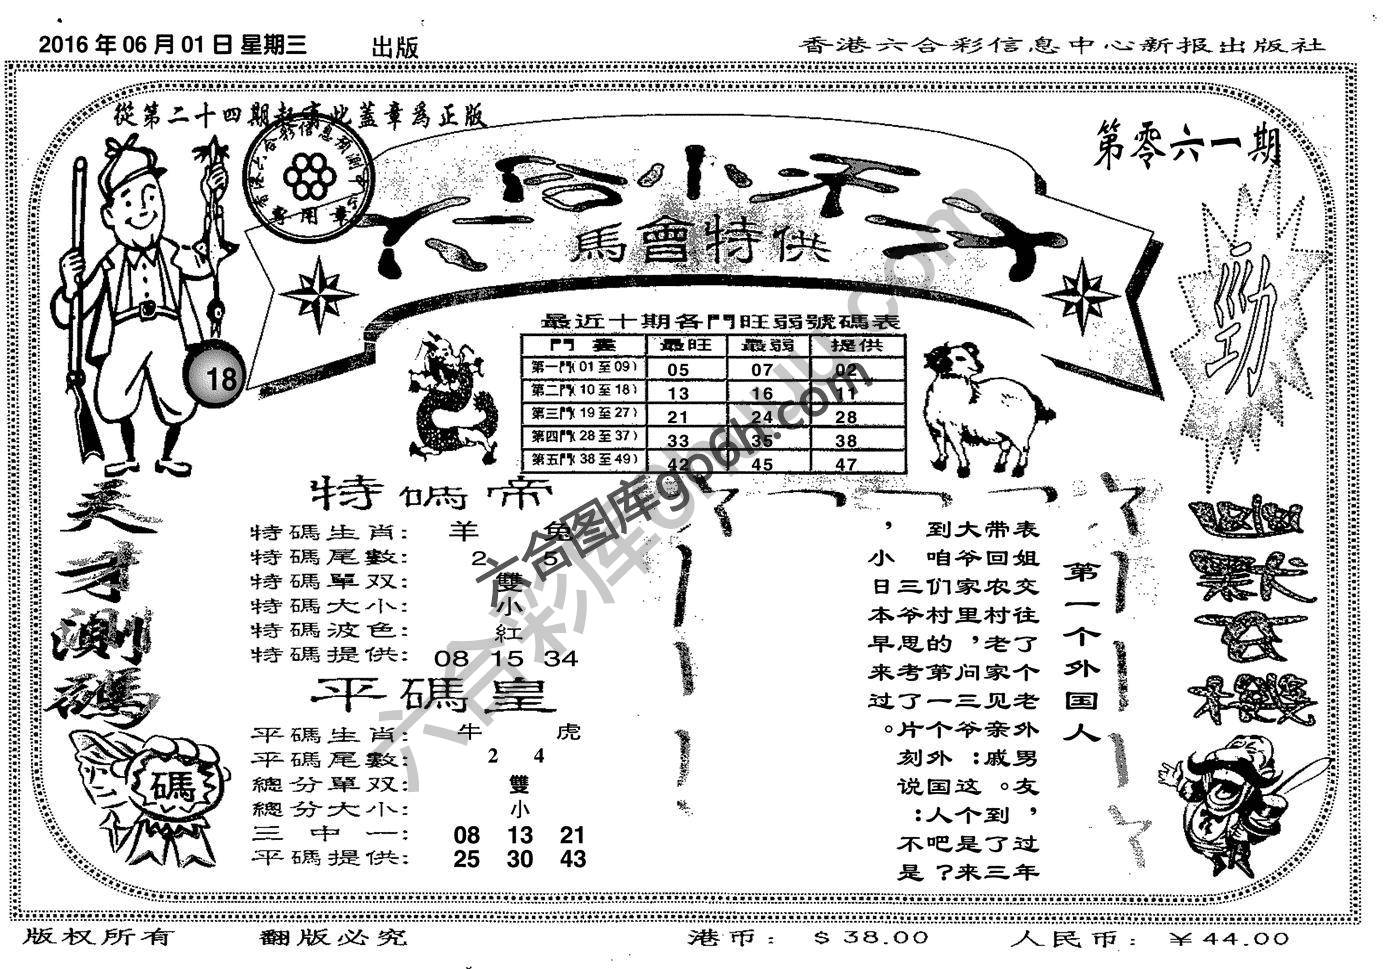 2016 年 06 月 01 日 星期三 出版
香港六合彩信息中心新报出版社
從第二十四期起寄此蓋章爲正版
專用章
第零六一期
六合小禾才
馬會特供
勁
18
最近十期各門旺弱號碼表
門 最旺 最弱 提供
第一門(01至09) 05 07 02
第二門(10至18) 13 16 11
第三門(19至27) 21 24 28
第四門(28至37) 33 35 38
第五門(38至49) 42 45 47
天才測碼
碼
特碼帝
特碼生肖: 羊 兔
特碼尾數: 2 5
特碼單双: 雙
特碼大小: 小
特碼波色: 紅
特碼提供: 08 15 34
平碼皇
平碼生肖: 牛 虎
平碼尾數: 2 4
總分單双: 雙
總分大小: 小
三中一: 08 13 21
平碼提供: 25 30 43
第一个外国人
表姐交往了个老外男友，过年
带回农村老家见亲戚。到了三
大爷家里，问三爷：这个是来
到咱们村的第一个外国人吧？
三爷思考了片刻说：不是
，小日本早来过。
六合图库gp6h.com
六合彩库
版权所有 翻版必究 港币: $38.00 人民币: ¥44.00